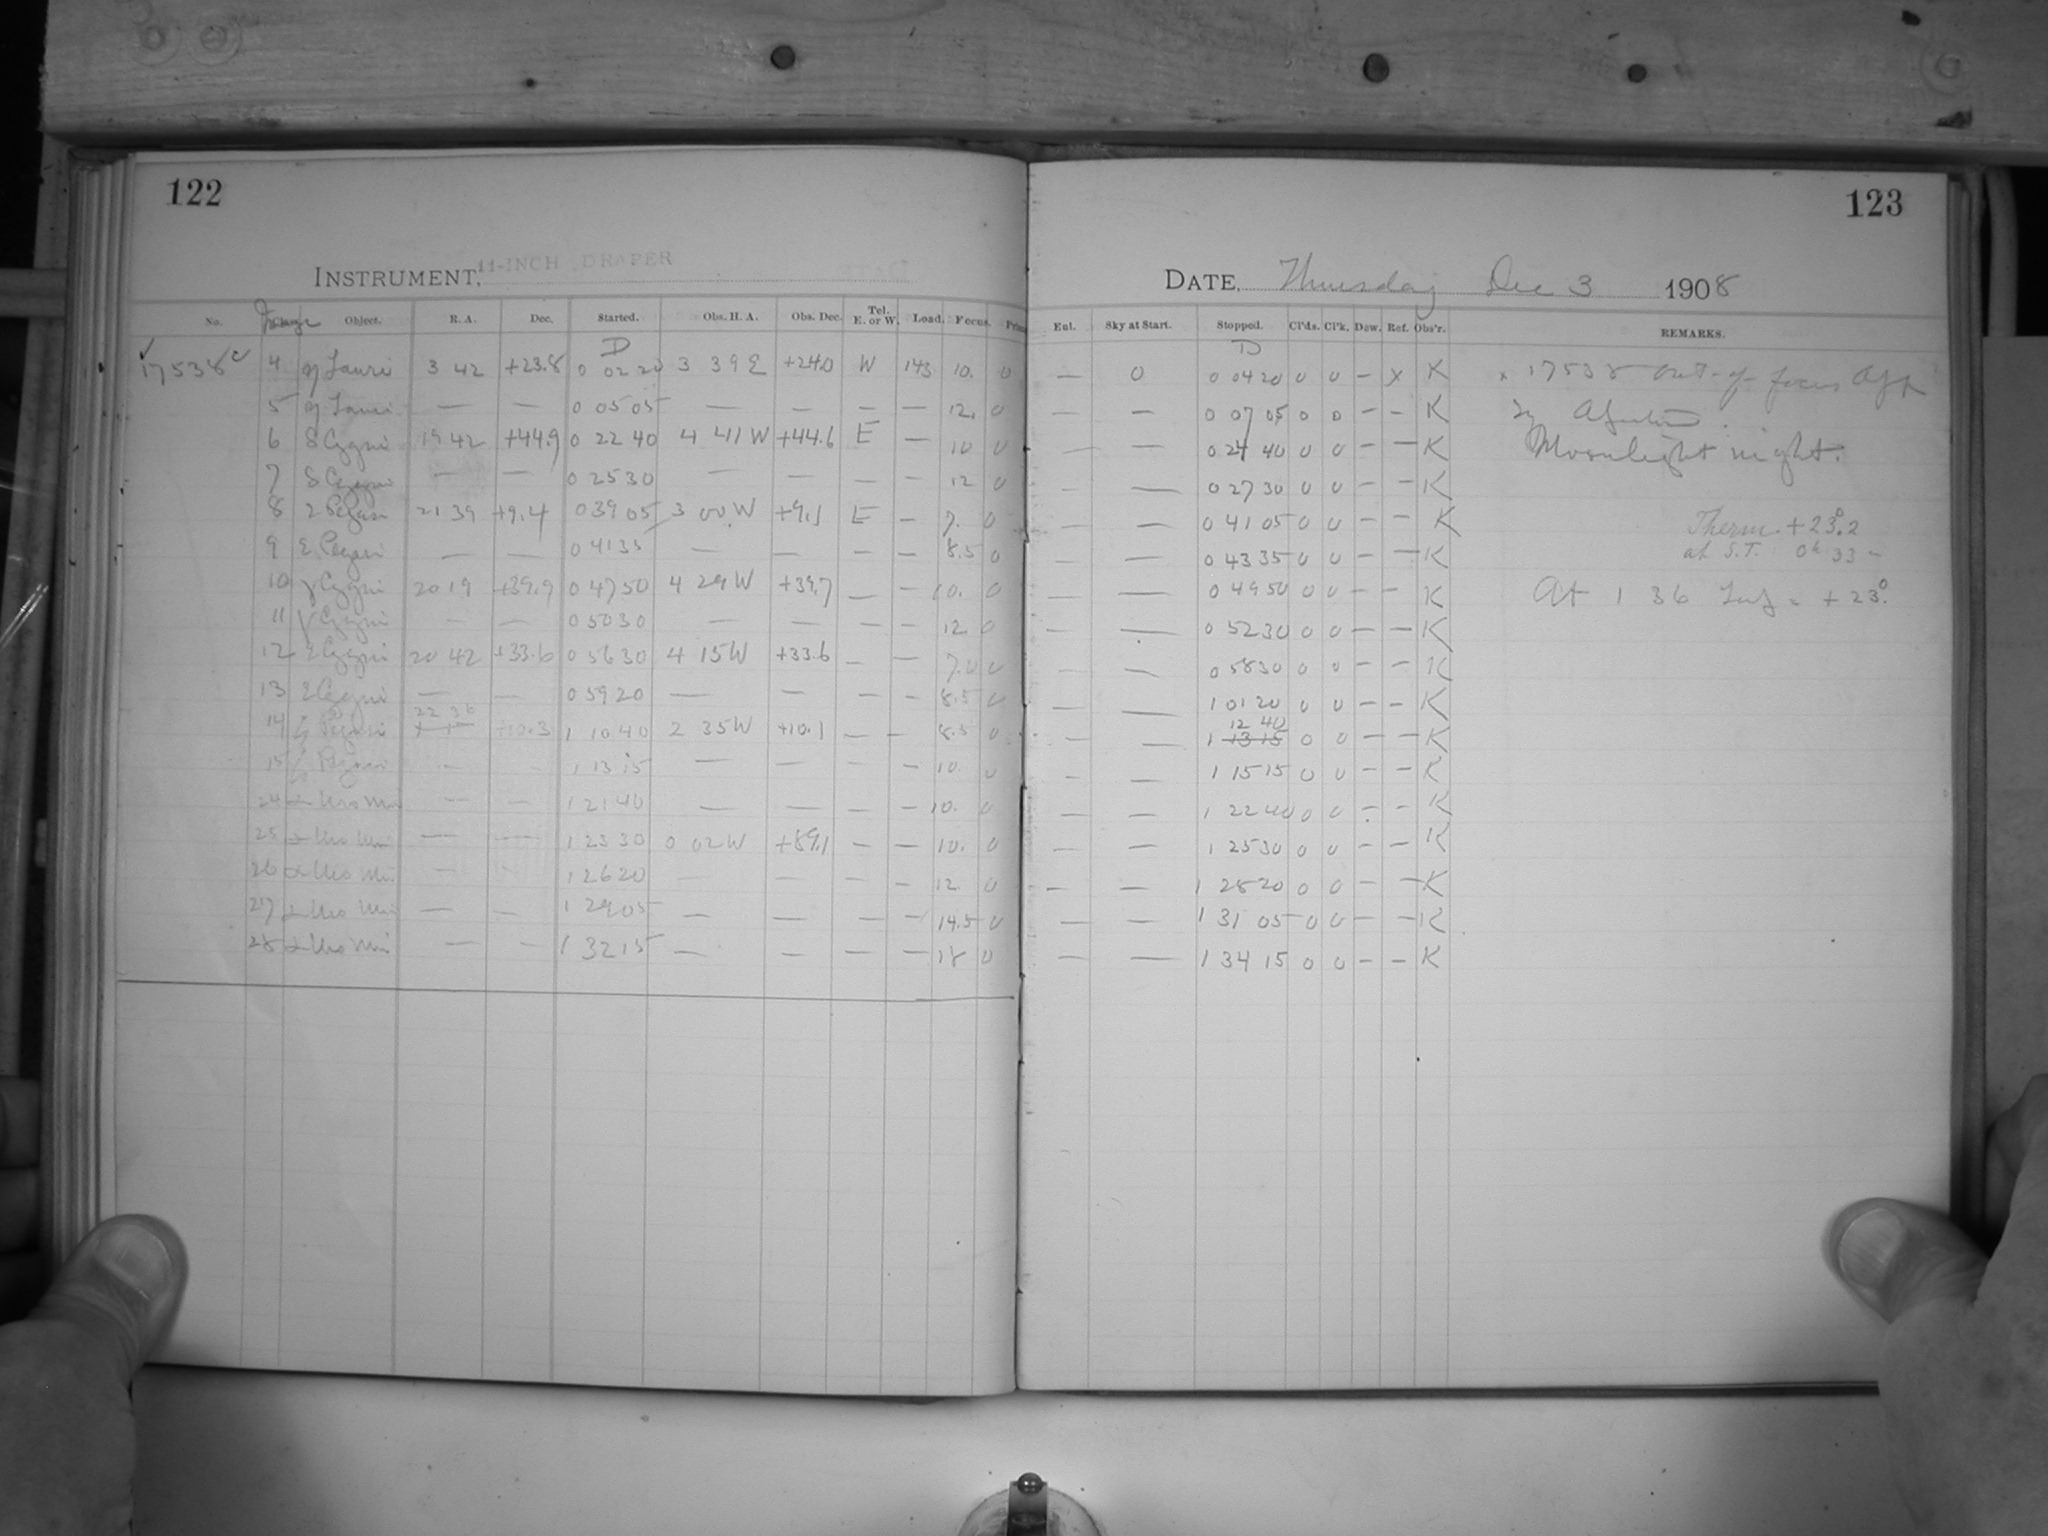 122
INSTRUMENT, 11-INCH DRAPER
No. Image Object. R. A. Dec. Started. Obs. H. A. Obs. Dec. Tel. E. or W. Load. Focus.
D
17538 4 η Tauri 3 42 +23.8 0 02 20 3 39 E +24.0 W 143 10. 0
5 η Tauri — — 0 05 05 — — — — 12. 0
6 δ Cygni 19 42 +44.9 0 22 40 4 41 W +44.6 E — 10 0
7 δ Cygni — — 0 25 30 — — — — 12 0
8 ε Pegasi 21 39 +9.4 0 39 05 3 00 W +9.1 E — 7. 0
9 ε Pegasi — — 0 41 35 — — — — 8.5 0
10 γ Cygni 20 19 +39.9 0 47 50 4 29 W +39.7 — — 10. 0
11 γ Cygni — — 0 50 30 — — — — 12. 0
12 ε Cygni 20 42 +33.6 0 56 30 4 15 W +33.6 — — 7.0 0
13 ε Cygni — — 0 59 20 — — — — 8.5 0
14 ζ Pegasi 22 36 +10.3 1 10 40 2 35 W +10.1 — — 8.5 0
15 ζ Pegasi — — 1 13 15 — — — — 10. 0
24 α Urs Min — — 1 21 40 — — — — 10. 0
25 α Urs Min — — 1 23 30 0 02 W +89.1 — — 10. 0
26 α Urs Min — — 1 26 20 — — — — 12. 0
27 α Urs Min — — 1 29 05 — — — — 14.5 0
28 α Urs Min — — 1 32 15 — — — — 18 0
123
DATE, Thursday Dec 3 1908
Enl. Sky at Start. Stopped. Cl'ds. Cl'k. Dew. Ref. Obs'r. REMARKS.
D
— 0 0 04 20 0 0 — x K x 17538 out-of-focus
— — 0 07 05 0 0 — — K
— — 0 24 40 0 0 — — K Moonlight night.
— — 0 27 30 0 0 — — K
— — 0 41 05 0 0 — — K Therm. +23°.2
— — 0 43 35 0 0 — — K at S.T. 0h 33
— — 0 49 50 0 0 — — K At 1 36 +23°.
— — 0 52 30 0 0 — — K
— — 0 58 30 0 0 — — K
— — 1 01 20 0 0 — — K
12 40
— — 1 13 15 0 0 — — K
— — 1 15 15 0 0 — — K
— — 1 22 40 0 0 — — K
— — 1 25 30 0 0 — — K
— — 1 28 20 0 0 — — K
— — 1 31 05 0 0 — — K
— — 1 34 15 0 0 — — K